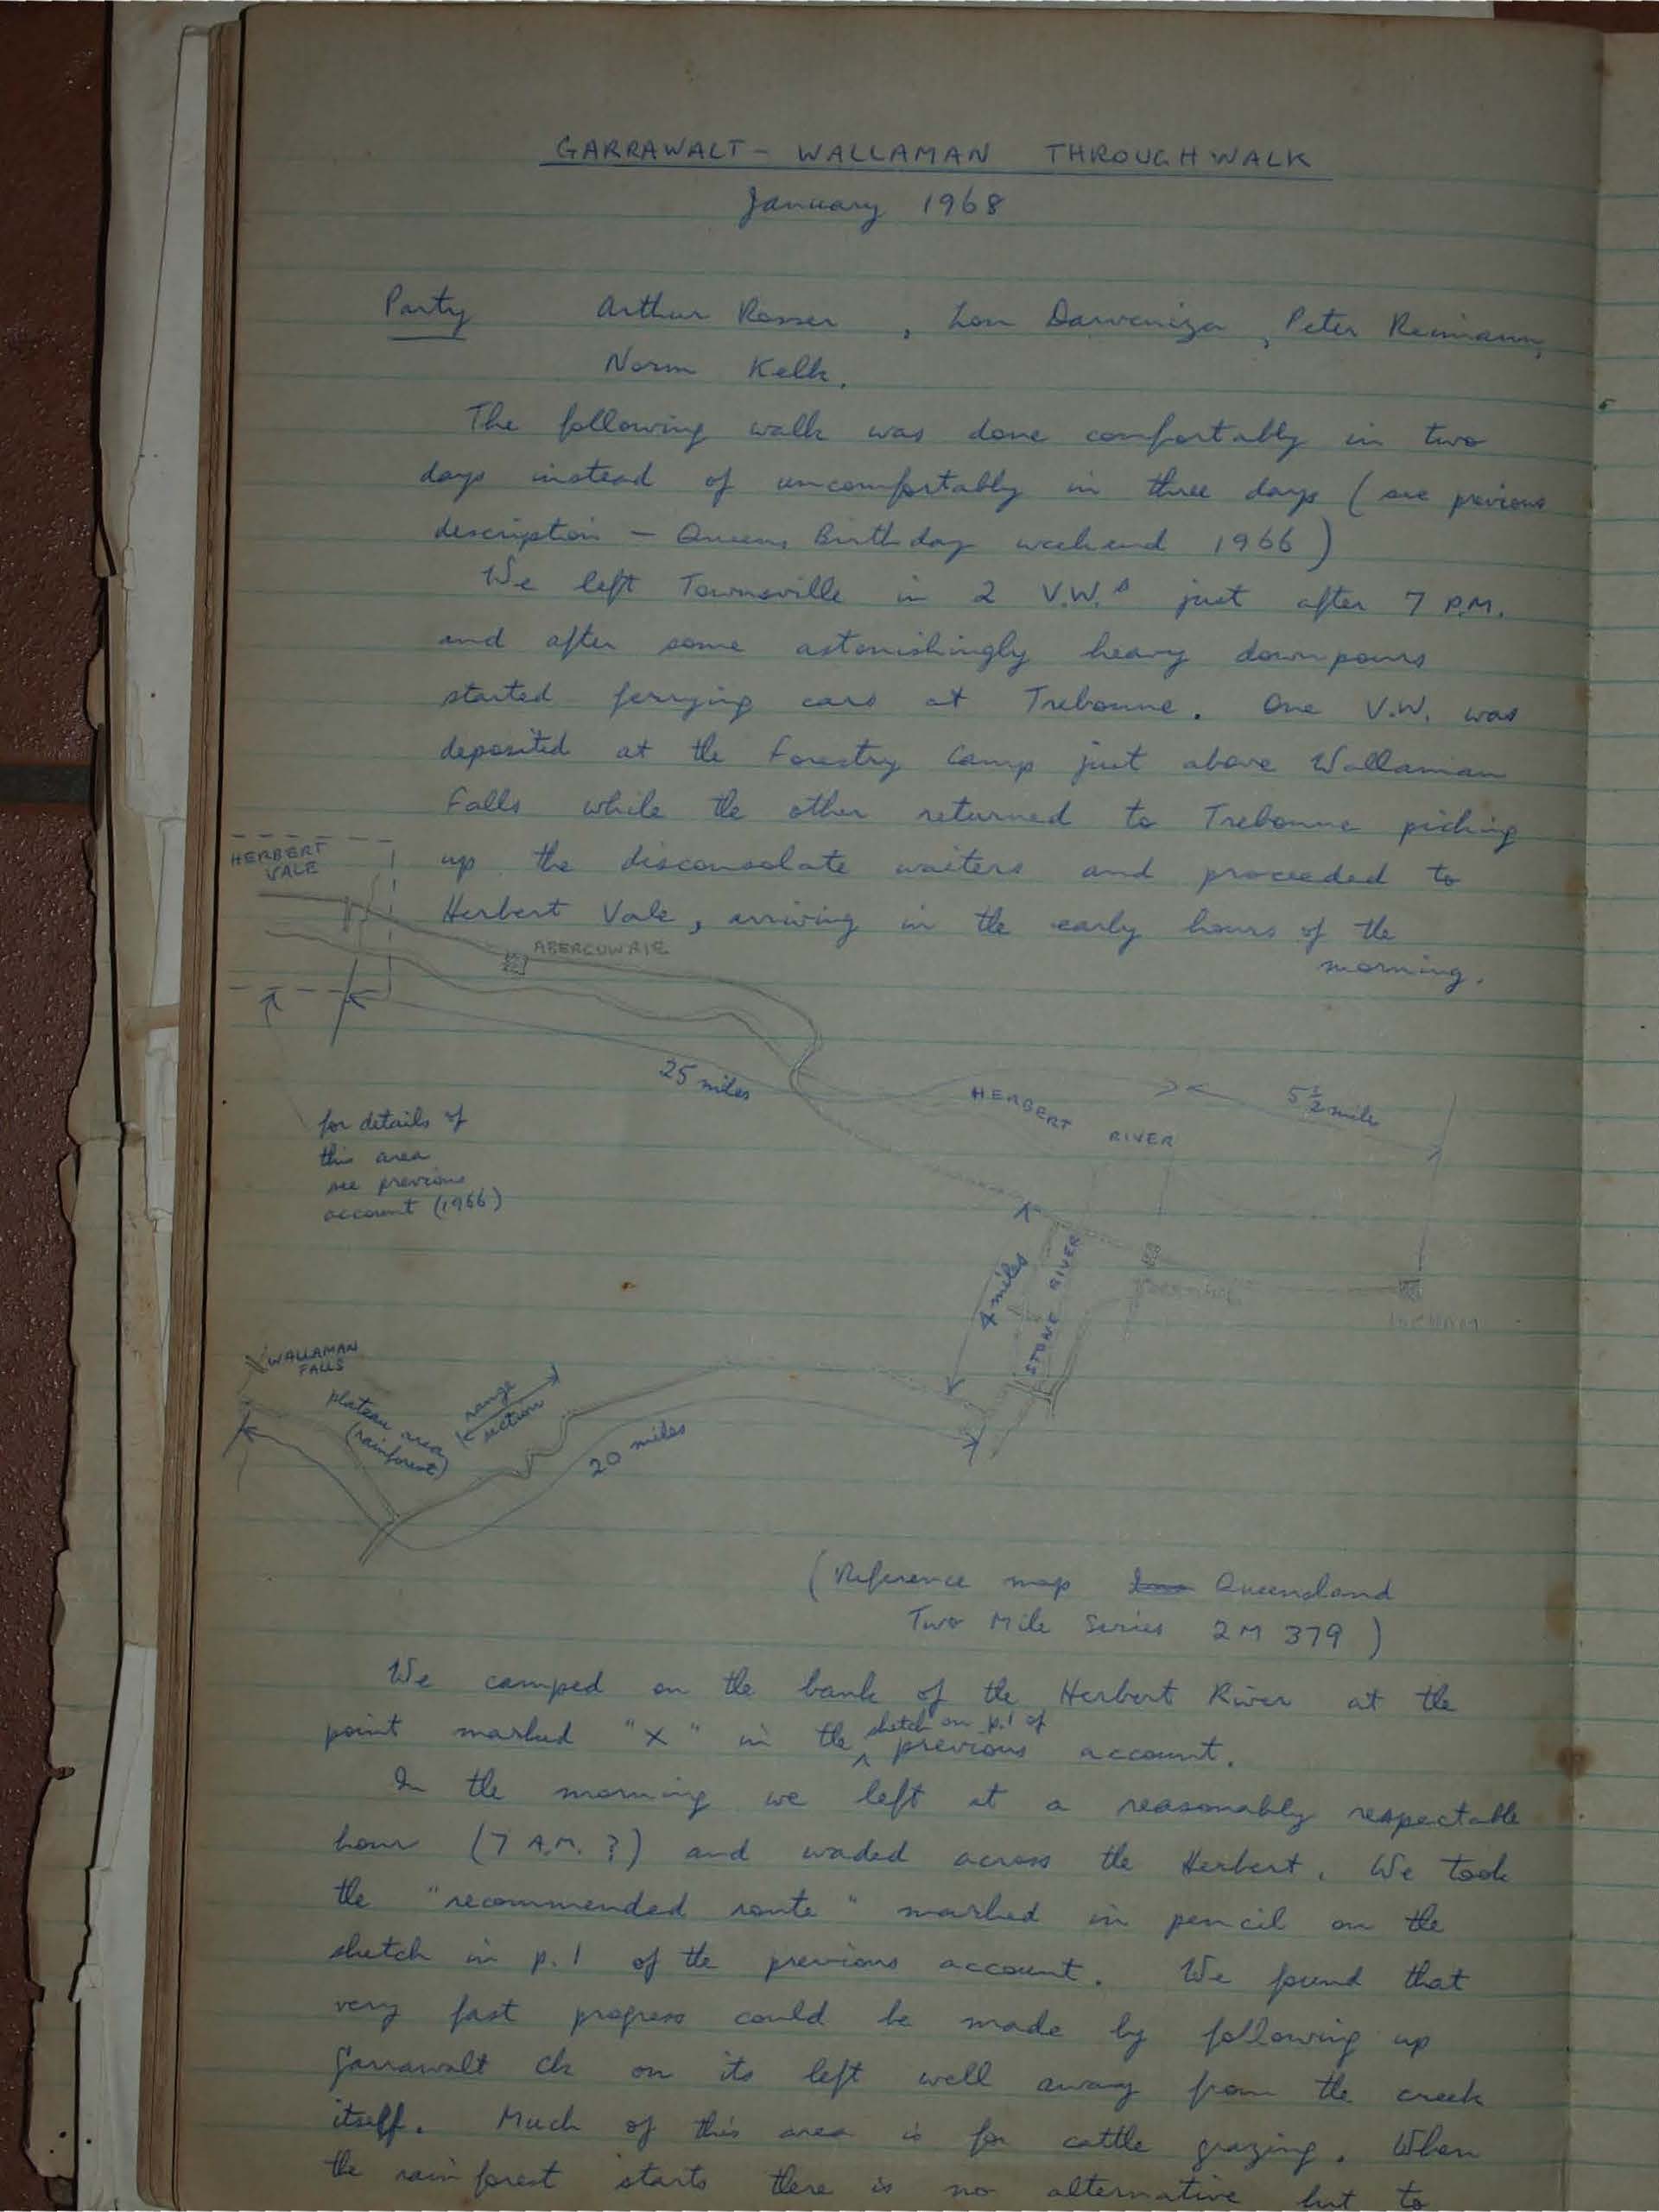 GARRAWALT - WALLAMAN THROUGHWALK
January 1968
Party Arthur Rosser, Lou Darveniza, Peter Reimann,
Norm Kelk.
The following walk was done comfortably in two
days instead of uncomfortably in three days (see previous
description - Queens Birthday weekend 1966)
We left Townsville in 2 V.W.s just after 7 P.M.
and after some astonishingly heavy downpours
started ferrying cars at Trebonne. One V.W. was
deposited at the Forestry Camp just above Wallaman
Falls while the other returned to Trebonne picking
up the disconsolate waiters and proceeded to
Herbert Vale, arriving in the early hours of the
morning.
HERBERT
VALE
ABERGOWRIE
25 miles
HERBERT RIVER
5½ mile
for details of
this area
see previous
account (1966)
4 miles
STONE RIVER
TREBONNE
INGHAM
WALLAMAN
FALLS
plateau area
(rainforest)
range
section
20 miles
(Reference map Queensland
Two Mile Series 2M 379)
We camped on the bank of the Herbert River at the
point marked "X" in the sketch on p.1 of previous account.
In the morning we left at a reasonably respectable
hour (7 A.M. ?) and waded across the Herbert. We took
the "recommended route" marked in pencil on the
sketch in p.1 of the previous account. We found that
very fast progress could be made by following up
Garrawalt Ck on its left well away from the creek
itself. Much of this area is for cattle grazing. When
the rainforest starts there is no alternative but to